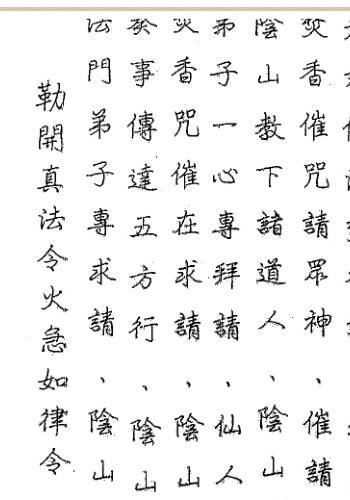 焚香催咒請眾神、催請
陰山教下諸道人、陰山
弟子一心專拜請、仙人
焚香咒催在求請、陰山
事傳達五方行、陰山
法門弟子專求請、陰山
勒開真法令火急如律令